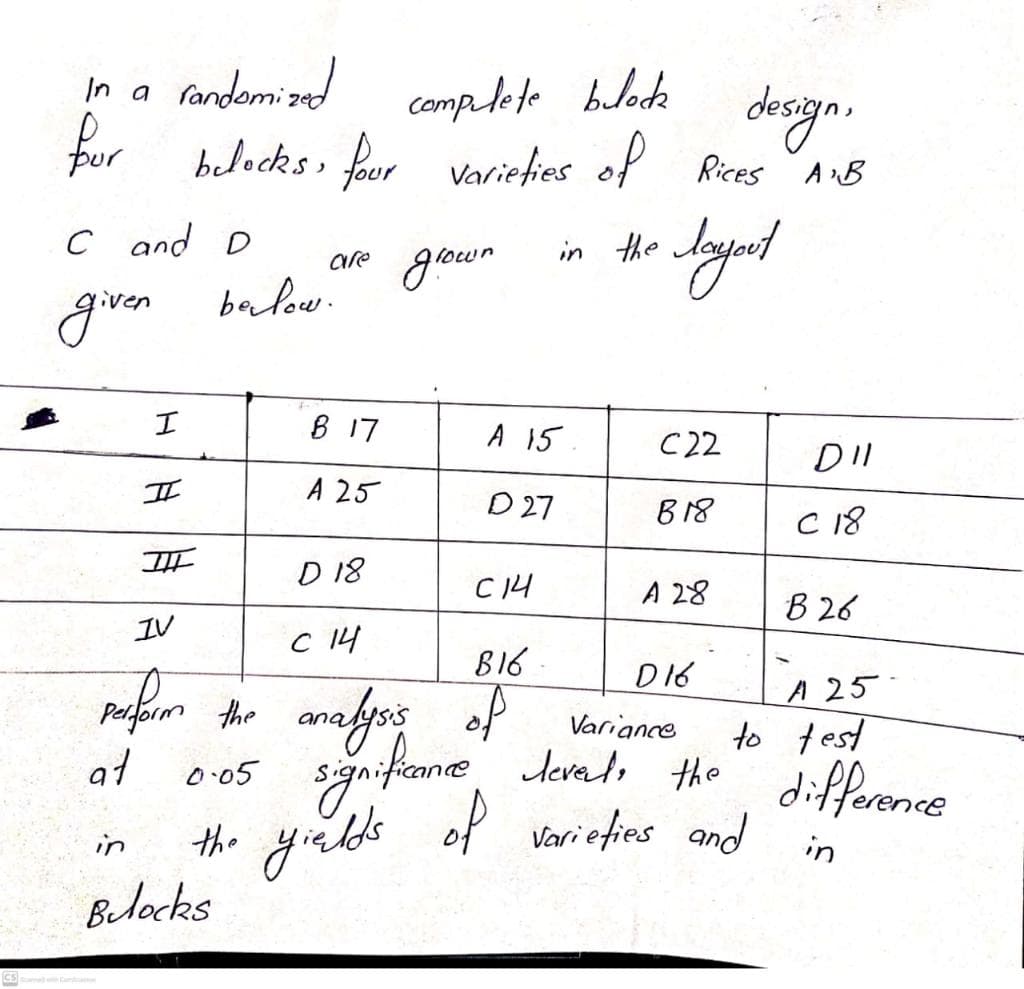 In a randomized complete block design,
four blocks, four varieties of Rices A,B
C and D are grown in the layout
given below.
I B 17 A 15 C 22 D 11
II A 25 D 27 B 18 C 18
III D 18 C 14 A 28 B 26
IV C 14 B 16 D 16 A 25
Perform the analysis of Variance to test
at 0.05 significance level, the difference
in the yields of varieties and in
Blocks
CS Scanned with CamScanner